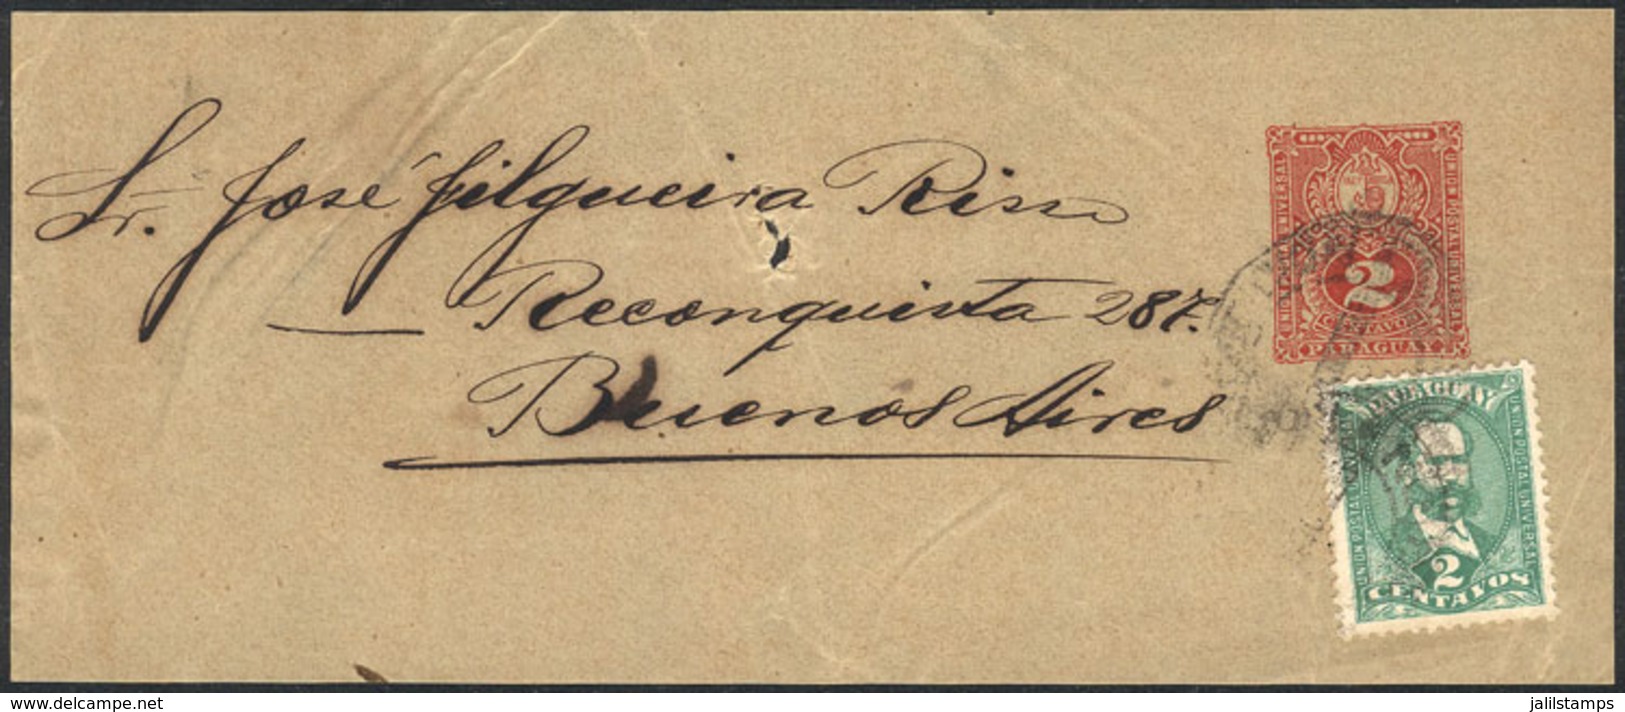 Sr. José Filgueira Risso
Reconquista 287.
Buenos Aires
UNION POSTAL UNIVERSAL
UNION POSTAL UNIVERSAL
2
CENTAVOS
PARAGUAY
PARAGUAY
UNION POSTAL UNIVERSAL
UNION POSTAL UNIVERSAL
2
CENTAVOS
delcampe.net
jalilstamps